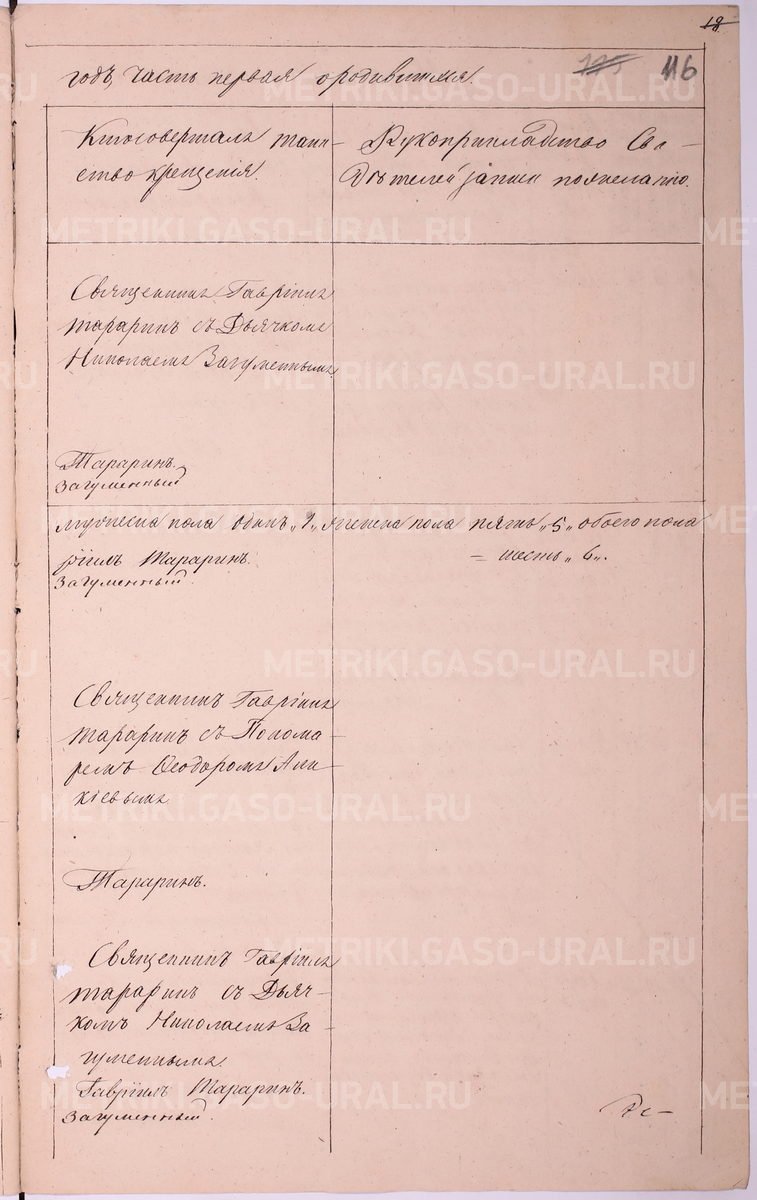 18
годъ, часть первая о родившихся.
115 116
Кто совершалъ таин-
ство крещенія.
Рукоприкладство Сви-
дѣтелей записи по желанію.
Священникъ Гавріилъ
Тараринъ съ Дьячкомъ
Николаемъ Загуменнымъ
Тараринъ.
Загуменный
мужеска пола одинъ „1„ женска пола пять „5„ обоего пола
= шесть „6„.
ріилъ Тараринъ.
Загуменный.
Священникъ Гавріилъ
Тараринъ съ Понома-
ремъ Ѳеодоромъ Али-
кіевымъ
Тараринъ.
Священникъ Гавріилъ
Тараринъ съ Дьяч-
комъ Николаемъ За-
гуменнымъ.
Гавріилъ Тараринъ.
Загуменный.
METRIKI.GASO-URAL.RU